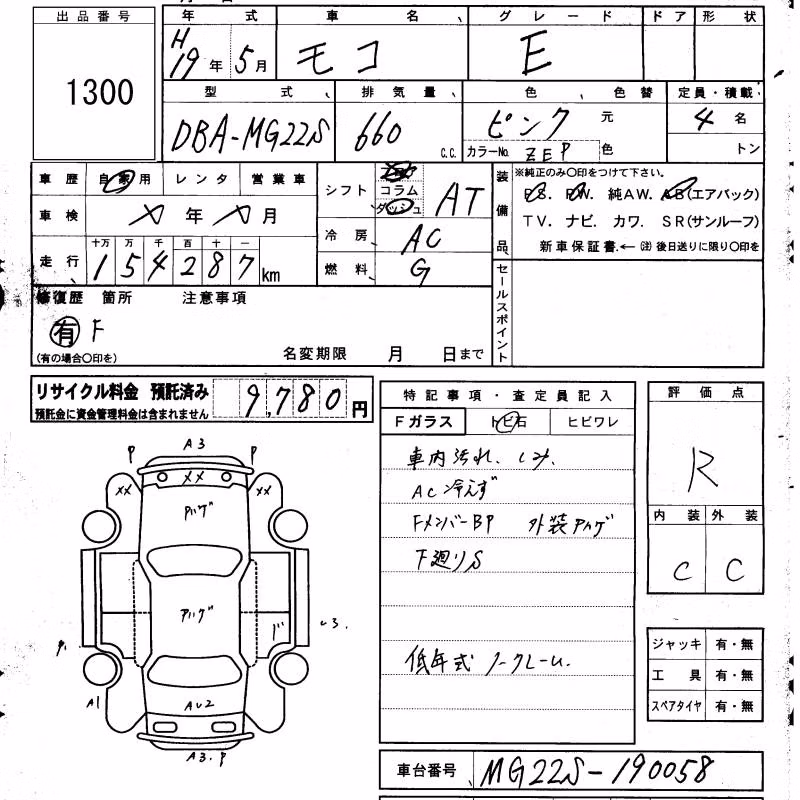 出品番号
1300
年 式 車 名 グレード ドア 形 状
H19年 5月 モコ E
型 式 排気量 色 色替 定員・積載
DBA-MG22S 660 c.c. ピンク 元 4名
カラーNo. ZEP 色 トン
車歴 自家用 レンタ 営業車
シフト コラム ダッシュ AT
車検 年 月
冷房 AC
走行 十万 万 千 百 十 一
154287 km
燃料 G
装備品
※純正のみ〇印をつけて下さい。
P.S. P.W. 純AW. AB(エアバック)
TV. ナビ. カワ. SR(サンルーフ)
新車保証書.← 注 後日送りに限り〇印を
修復歴 箇所 注意事項
有 F
(有の場合〇印を)
名変期限 月 日まで
セールスポイント
リサイクル料金 預託済み
預託金に資金管理料金は含まれません
9,780円
特記事項・査定員記入
Fガラス トビ石 ヒビワレ
車内汚れ、しみ、
AC冷えず
FメンバーBP 外装アハゲ
下廻りS
低年式 ノークレーム.
評価点
R
内装 外装
C C
ジャッキ 有・無
工具 有・無
スペアタイヤ 有・無
A3
P P
XX XX XX
Pハゲ
Pハゲ
P.
A1
AU2
A3.P
車台番号 MG22S-190058